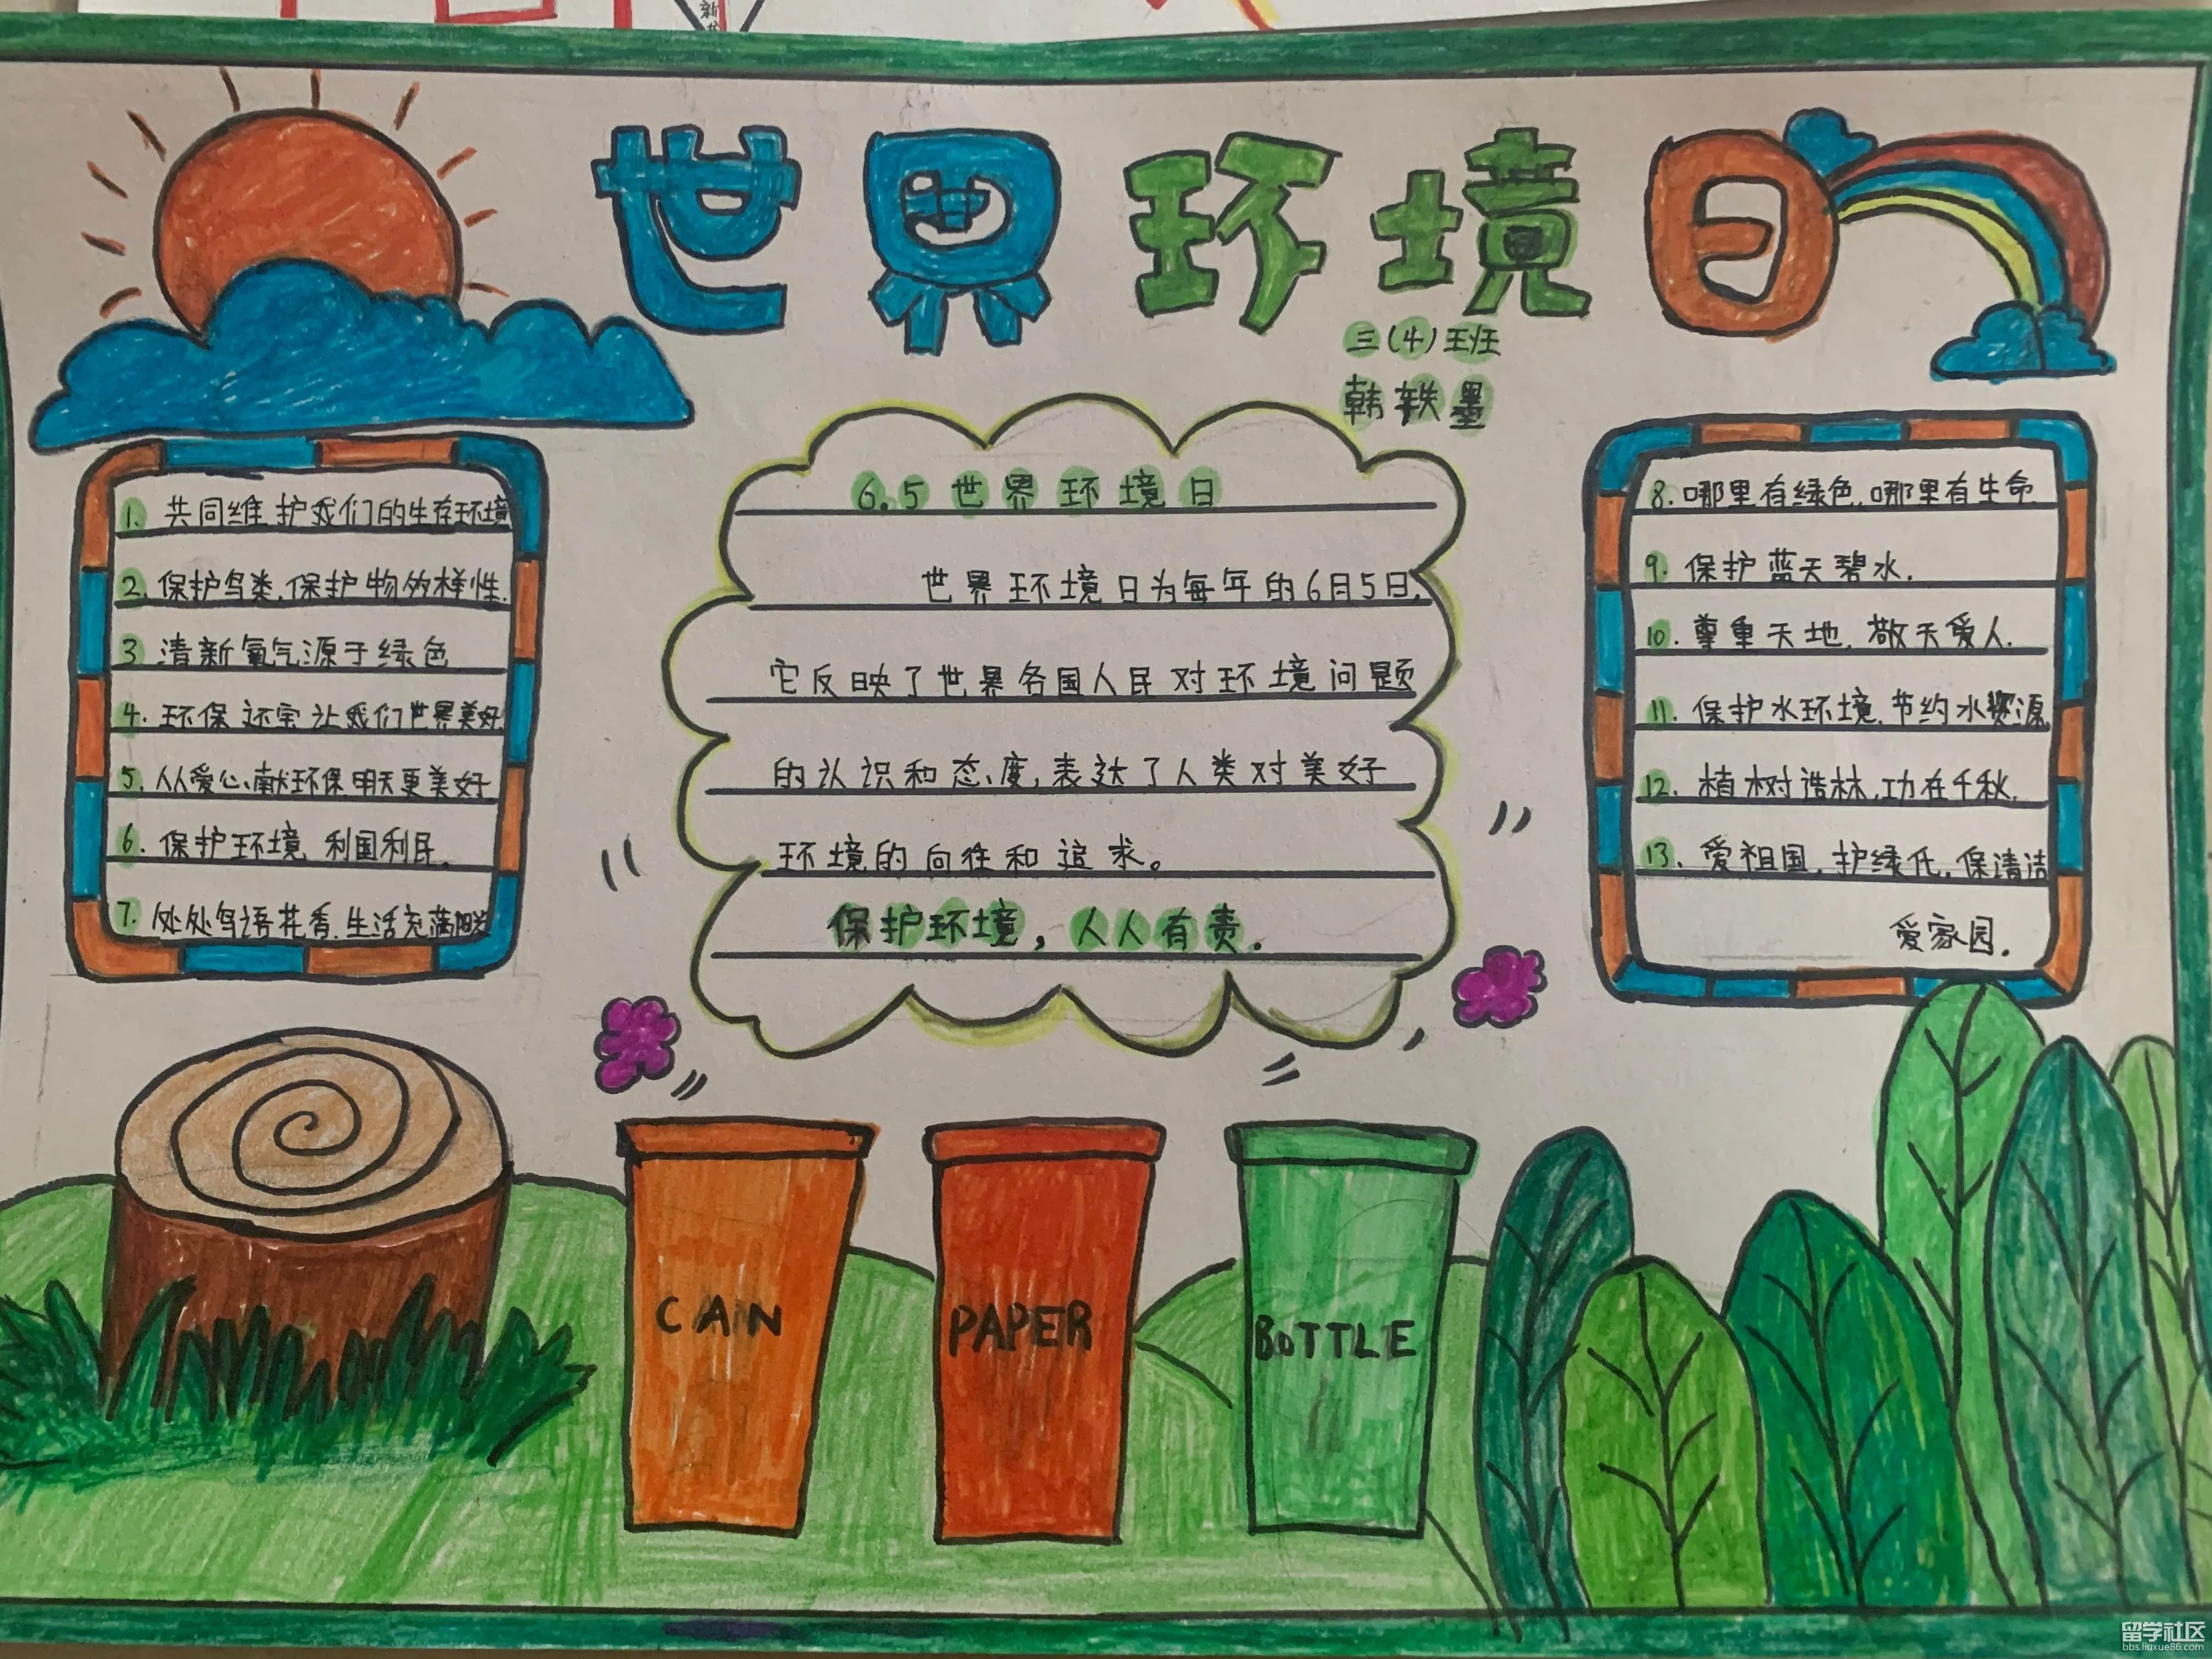 世界环境日
三(4)班
韩轶墨
1. 共同维护我们的生存环境
2. 保护鸟类,保护物的样性.
3 清新氧气源于绿色
4. 环保还宝让我们世界美好
5. 人人爱心献环保明天更美好
6. 保护环境 利国利民.
7. 处处鸟语花香.生活充满阳光
6.5世界环境日
世界环境日为每年的6月5日,
它反映了世界各国人民对环境问题
的认识和态度,表达了人类对美好
环境的向往和追求。
保护环境,人人有责.
8. 哪里有绿色,哪里有生命
9. 保护蓝天碧水.
10. 尊重天地,敬天爱人.
11. 保护水环境,节约水资源
12. 植树造林,功在千秋.
13. 爱祖国,护绿化,保清洁
爱家园.
CAN
PAPER
BOTTLE
留学社区
bbs.liuxue86.com